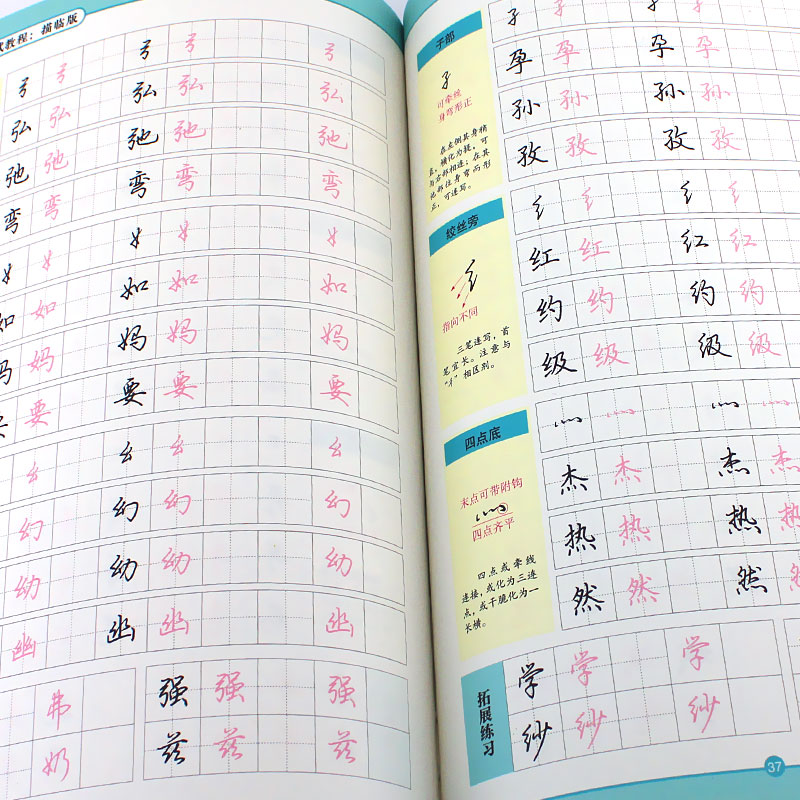 教程：描临版
弓 弓 弓 弓 弓
弘 弘 弘 弘 弘
弛 弛 弛 弛 弛
弯 弯 弯 弯 弯
女 女 女 女 女
如 如 如 如 如
妈 妈 妈 妈 妈
要 要 要 要
幺 幺 幺 幺
幻 幻 幻 幻
幼 幼 幼 幼
幽 幽 幽 幽
弗 强 强 强
奶 兹 兹 兹
子部
子
可牵丝
身弯形正
在左侧其身稍
直，横化为提，可
与右部相连；在其
他部位身弯而形
正，可连写。
绞丝旁
纟
指向不同
三笔连写，首
笔宜长。注意与
“扌”相区别。
四点底
末点可带附钩
灬
四点齐平
四点或牵线
连接，或化为三连
点，或干脆化为一
长横。
子 子 子 子
孕 孕 孕 孕
孙 孙 孙 孙
孜 孜 孜 孜
纟 纟 纟 纟
红 红 红 红
约 约 约 约
级 级 级 级
灬 灬 灬 灬
杰 杰 杰 杰
热 热 热 热
然 然 然 然
拓展练习
学 学 学
纱 纱 纱
37